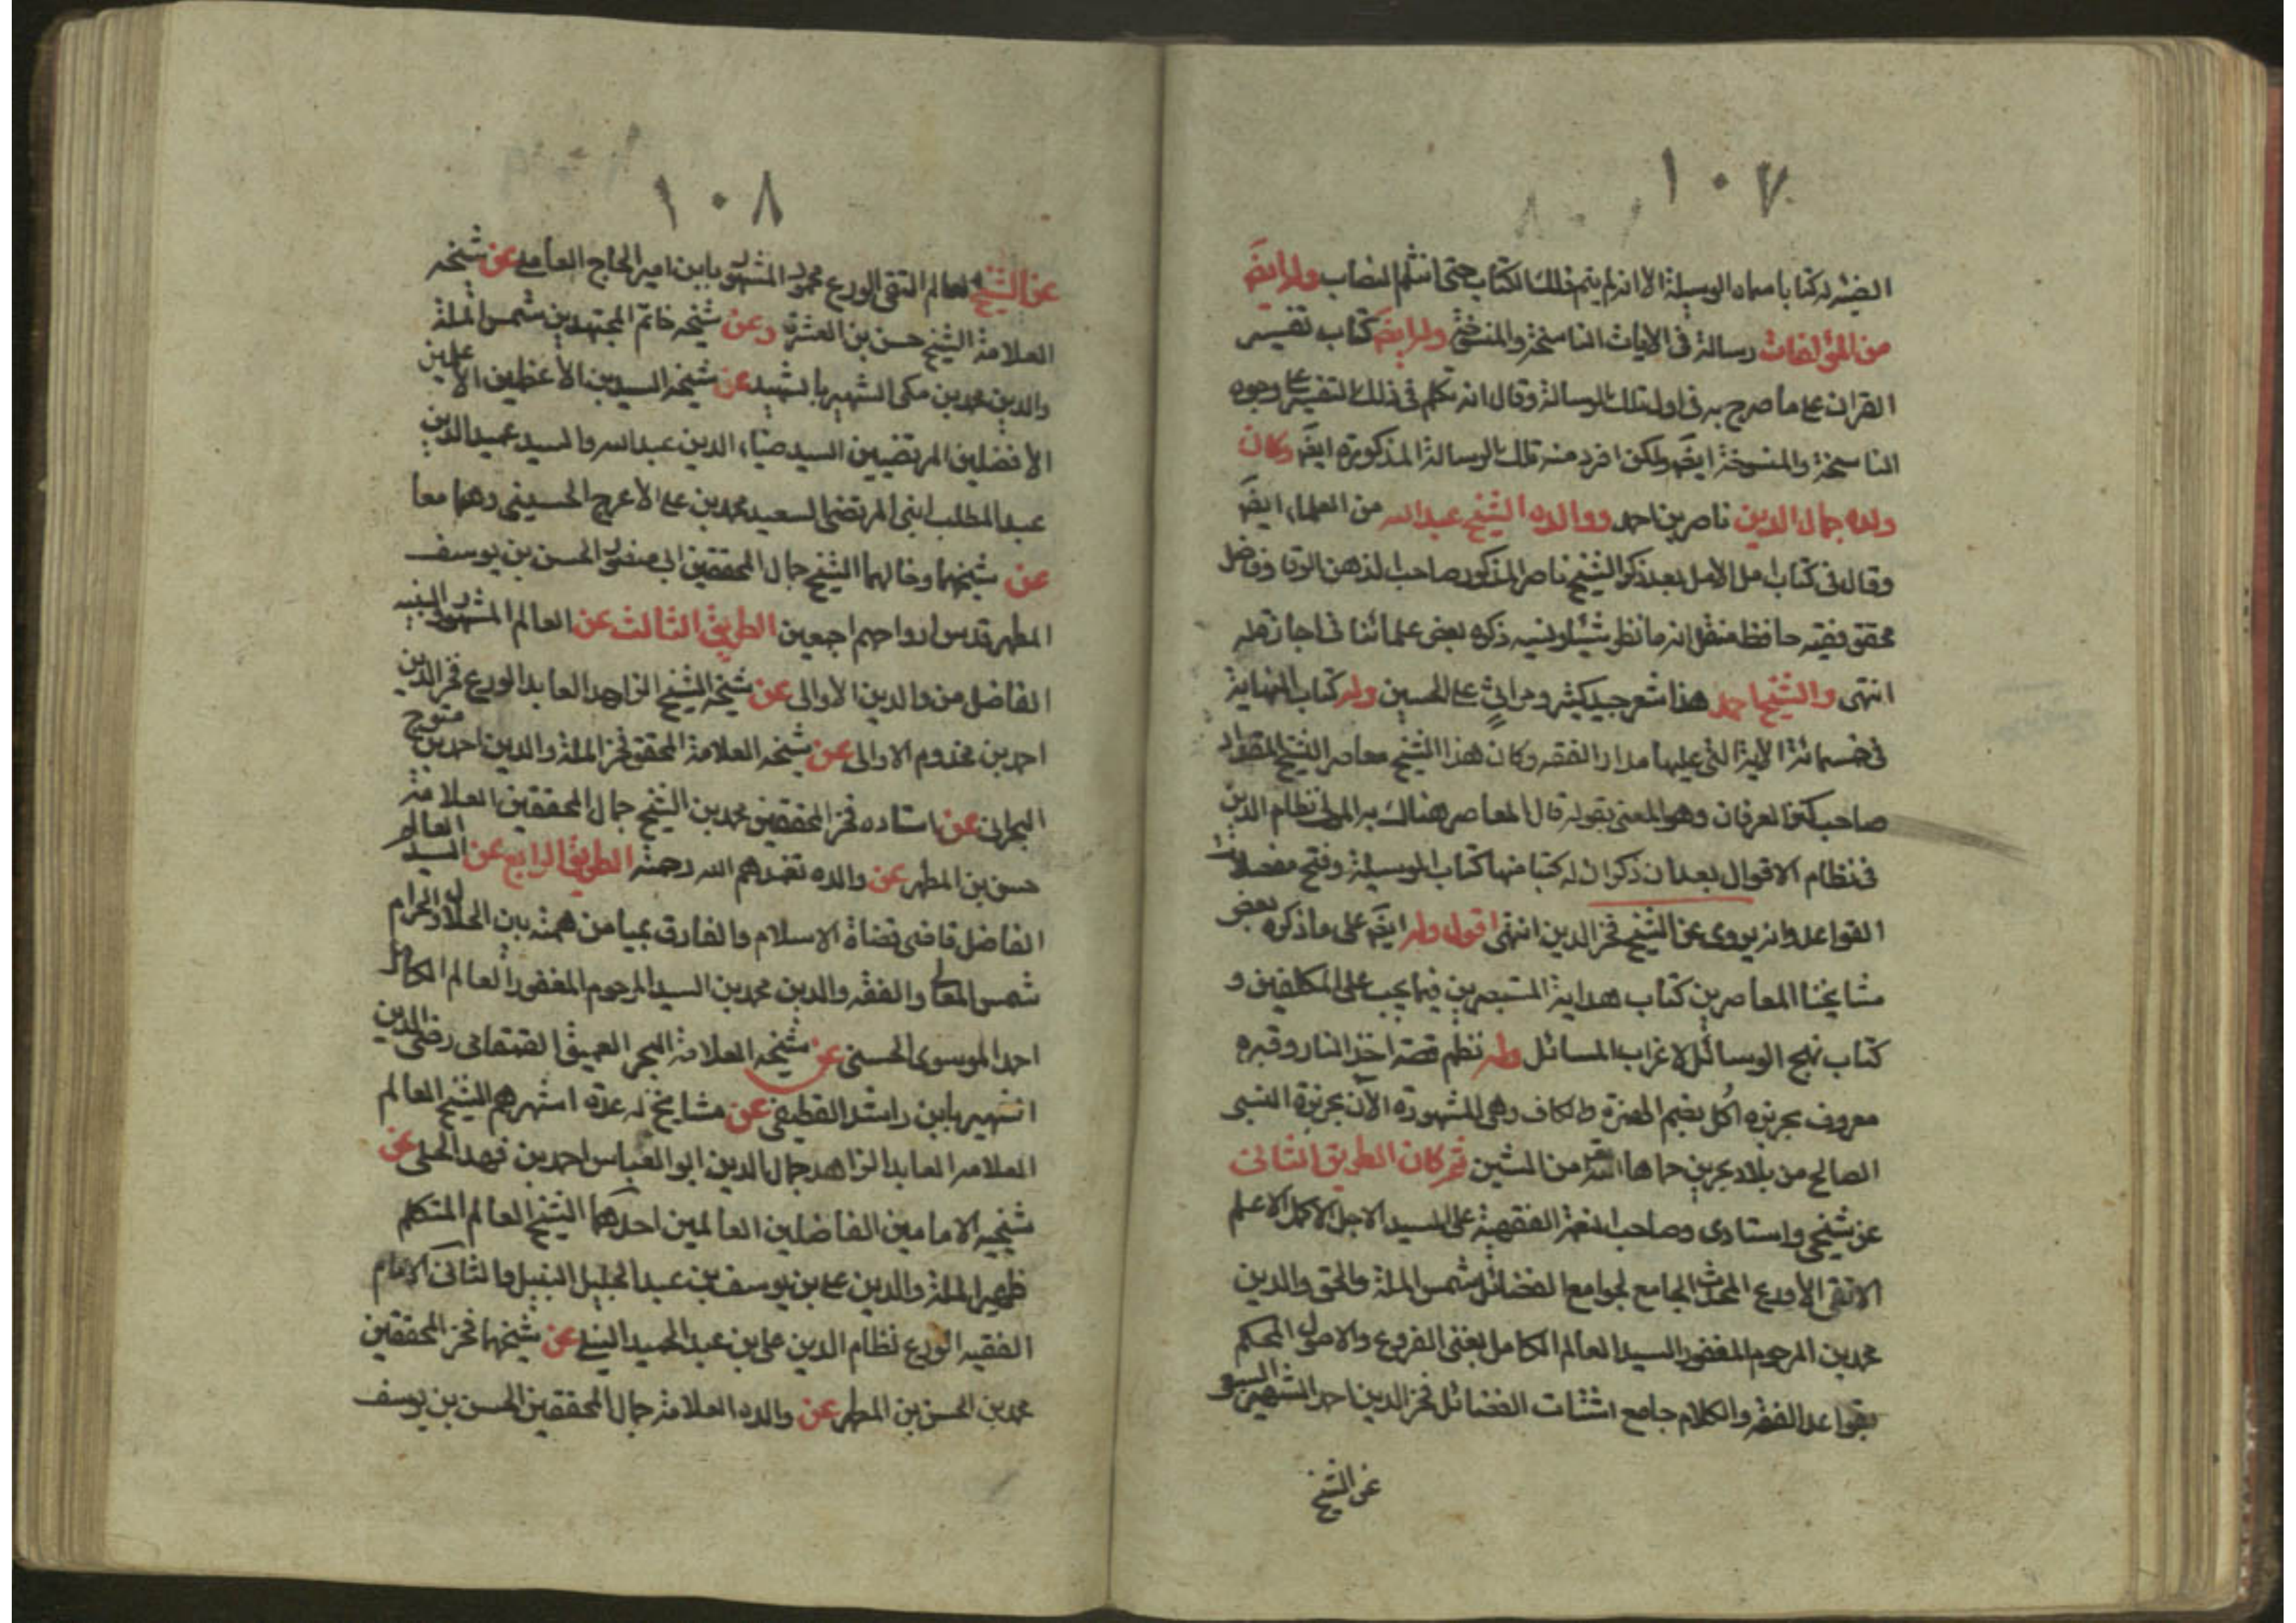 ١٠٧
له كتابا سماه الوسيلة الا انه لم يتم ذلك الكتاب حتى انثلم النصاب وله ايضَ
من المؤلفات رسالة في الايات الناسخة والمنسوخة وله ايضَ كتاب تفسير
القران على ما صرح به في اول تلك الرسالة وقال انه تكلم في ذلك التفسير على وجوه
الناسخة والمنسوخة ايضَ ولكن افرد منه تلك الرسالة المذكورة ايضَ وكان
ولده جمال الدين ناصر بن احمد ووالده الشيخ عبد الله من العلماء ايضَ
وقال في كتاب امل الامل بعد ذكر الشيخ ناصر المذكور صاحب الذهن الوقاد وفاضل
محقق فقيه حافظ نقل انه ما نظر شيئا ونسيه ذكره بعض علمائنا في اجازة له
انتهى والشيخ احمد هذا شعر جيد كثير ومراثي على الحسين وله كتاب النهاية
في خمسمائة الآية التي عليها مدار الفقه وكان هذا الشيخ معاصر الشيخ المقداد
صاحب كنز العرفان وهو المعنى بقوله قال المعاصر هناك به المولى نظام الدين
في نظام الاقوال بعد ان ذكر ان له كتبا منها كتاب الوسيلة وفتح مفضلات
القواعد وانه يروى عن الشيخ فخر الدين انتهى اقول وله ايضَ على ما ذكره بعض
مشايخنا المعاصرين كتاب هداية المستبصرين فيما يجب على المكلفين و
كتاب نهج الوسائل لاغراب المسائل وله نظم قصة اخذ الثار وقبره
معروف بجزيرة اكل بضم الهمزة والكاف وهي المشهورة الآن بجزيرة النبي
الصالح من بلاد بحرين حماها الله من الشين ثم كان الطريق الثاني
عن شيخي واستادى وصاحب النعمة الفقهية على السيد الاجل الاكمل الاعلم
الاتقى الأورع المحدث الجامع لجوامع الفضائل شمس الملة والحق والدين
محمد بن المرحوم المغفور السيد العالم الكامل بغنى الفروع والاصول المحكم
بقواعد الفقه والكلام جامع اشتات الفضائل فخر الدين احمد الشهير
عن الشيخ
١٠٨
عن الشيخ العالم التقى الورع محمود المشهور بابن امير الحاج العاملي عن شيخه
العلامة الشيخ حسن بن العشرة وعن شيخه خاتم المجتهدين شمس الملة
والدين محمد بن مكى الشهير بالشهيد عن شيخه السيدين الأعظمين الاعلمين
الأفضلين المرتضيين السيد ضياء الدين عبد الله والسيد عميد الدين
عبد المطلب ابنى المرتضى السعيد محمد بن على الأعرج الحسيني وهما معا
عن شيخهما وخالهما الشيخ جمال المحققين ابى منصور الحسن بن يوسف
المطهر قدس ارواحهم اجمعين الطريق الثالث عن العالم المشهور النبيه
الفاضل من والدين الأوالى عن شيخه الشيخ الزاهد العابد الورع فخر الدين
احمد بن مخدوم الاوالى عن شيخه العلامة المحقق فخر الملة والدين احمد بن متوج
البحرانى عن استاده فخر المحققين محمد بن الشيخ جمال المحققين العلامة
حسن بن المطهر عن والده تغمدهم الله رحمته الطريق الرابع عن السيد العالم
الفاضل قاضى قضاة الاسلام والفارق بميامن همته بين الحلال والحرام
شمس المعالى والفقه والدين محمد بن السيد المرحوم المغفور العالم الكامل
احمد الموسوى الحسنى عن شيخه العلامة البحر العميق القمقامى رضى الدين
الشهير بابن راشد القطيفى عن مشايخ له عدة اشهرهم الشيخ العالم
العلامه العابد الزاهد جمال الدين ابو العباس احمد بن فهد الحلى عن
شيخيه الامامين الفاضلين العالمين احدهما الشيخ العالم المتكلم
ظهير الملة والدين على بن يوسف بن عبد الجليل النيلى والثانى الامام
الفقيه الورع نظام الدين على بن عبد الحميد النيلى عن شيخهما فخر المحققين
محمد بن الحسن بن المطهر عن والده العلامة جمال المحققين الحسن بن يوسف